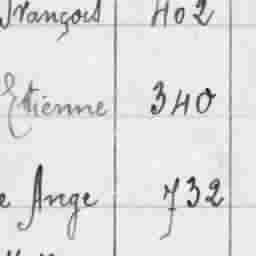 François 402
Etienne 340
e Ange 732